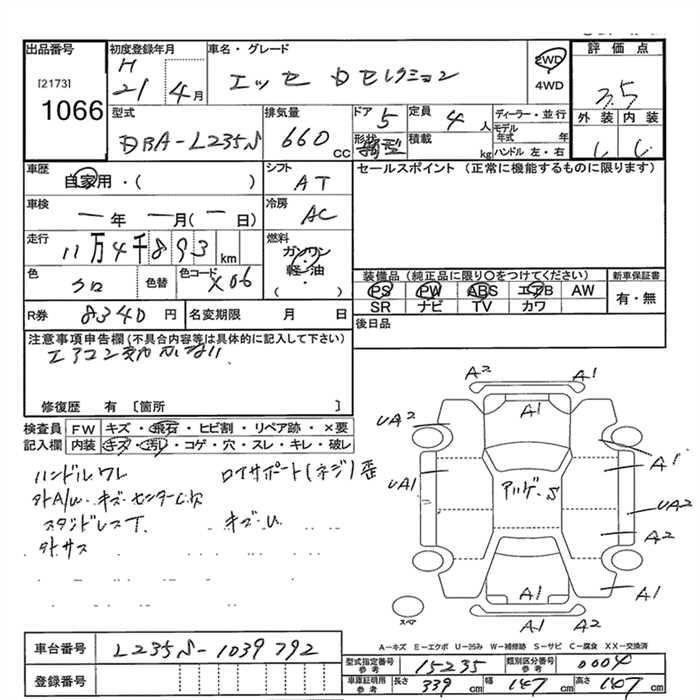 出品番号 初度登録年月 車名・グレード 評価点
[2173] H 2WD
1066 21 4月 エッセ Dセレクション 4WD 3.5
型式 排気量 ドア 5 定員 4人 ディーラー・並行 外装 内装
DBA-L235S 660CC 形状 積載 kg モデル年式 年
ハンドル 左・右
車歴 シフト セールスポイント (正常に機能するものに限ります)
自家用・( ) AT
車検 冷房
ー年 ー月(ー日) AC
走行 燃料
11万4千893km ガソリン
軽・油
色 色替 色コード ( ) 装備品(純正品に限り○をつけてください) 新車保証書
クロ X06 PS PW ABS エアB AW 有・無
R券 8340円 名変期限 月 日 SR ナビ TV カワ
後日品
注意事項申告欄(不具合内容等は具体的に記入して下さい)
エアコン
修復歴 有 [箇所 ]
検査員 FW キズ・飛石・ヒビ割・リペア跡・×要
記入欄 内装 キズ・汚れ・コゲ・穴・スレ・キレ・破レ
ハンドルワレ ロイサポート(ネジ)歪
外A/W キズ センターC欠
スタッドレスT. キズ・U
外サス
A2 A1
A1
UA2
A1
UA1 アルゲ・S UA2
A2
A1 A1
スペア A1 A2
A-キズ E-エクボ U-凹み W-補修跡 S-サビ C-腐食 XX-交換済
車台番号 L235S-1039792
型式指定番号 参考 15235 類別区分番号 参考 0004
登録番号 車庫証明用 参考 長さ 339cm 幅 147cm 高さ 147cm